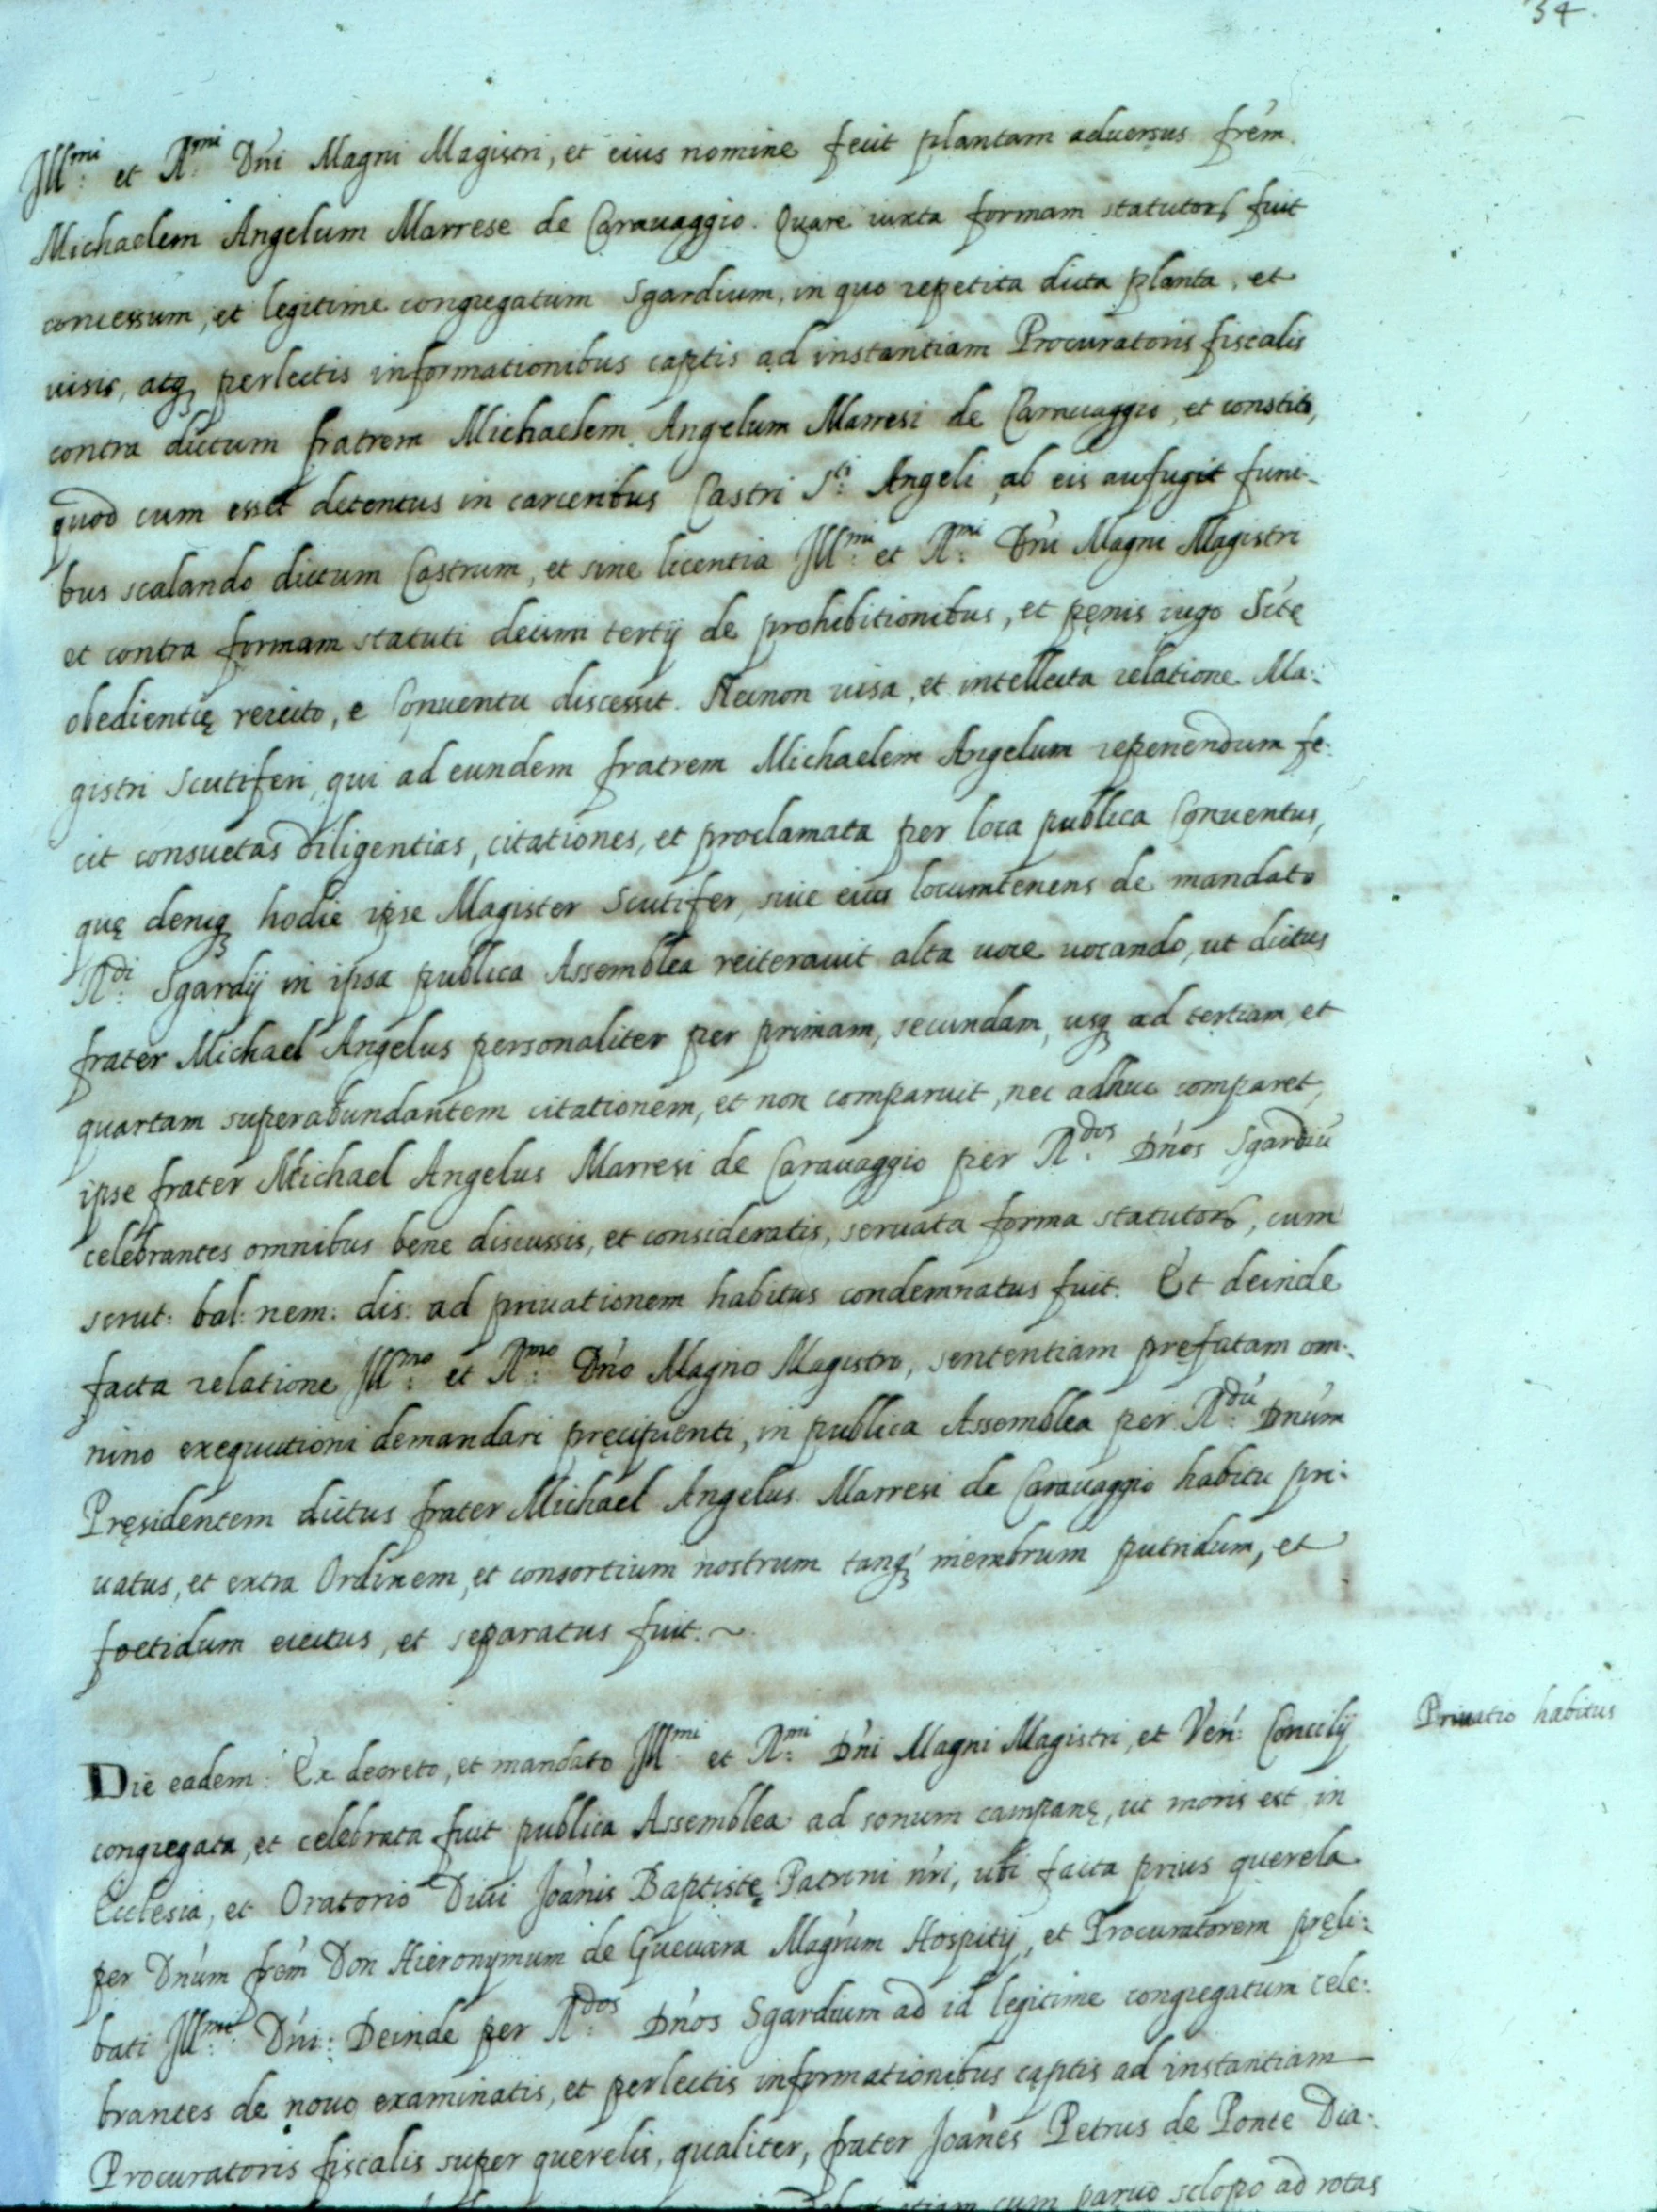 34.
Ill.mi et R.mi Dni Magni Magistri, et eius nomine fecit plantam aduersus frem.
Michaelem Angelum Marrese de Carauaggio. Quare iuxta formam statutorȝ fuit
concessum, et legitime congregatum Sgardium, in quo repetita dicta planta, et
uisis, atqȝ perlectis informationibus captis ad instantiam Procuratoris fiscalis
contra dictum fratrem Michaelem Angelum Marresi de Carauaggio, et constito,
quod cum esset detentus in carceribus Castri S.ti Angeli, ab eis aufugit funi-
bus scalando dictum Castrum, et sine licentia Ill.mi et R.mi Dni Magni Magistri
et contra formam statuti decimi tertij de prohibitionibus, et pęnis iugo Stę
obedientię reiecto, e Conuentu discessit. Necnon uisa, et intellecta relatione Ma-
gistri Scutiferi, qui ad eundem fratrem Michaelem Angelum reperiendum fe-
cit consuetas diligentias, citationes, et proclamata per loca publica Conuentus,
quę deniqȝ hodie ipse Magister Scutifer, siue eius locumtenens de mandato
R.di Sgardij in ipsa publica Assemblea reiterauit alta uoce uocando, ut dictus
frater Michael Angelus personaliter per primam, secundam, usqȝ ad tertiam, et
quartam superabundantem citationem, et non comparuit, nec adhuc comparet,
ipse frater Michael Angelus Marresi de Carauaggio per R.dos Dnos Sgardiū
celebrantes omnibus bene discussis, et consideratis, seruata forma statutorȝ, cum
scrut: bal: nem: dis: ad priuationem habitus condemnatus fuit. Et deinde
facta relatione Ill.mo et R.mo Dno Magno Magistro, sententiam prefatam om-
nino exequutioni demandari pręcipienti, in publica Assemblea per R.dū Dnum
Pręsidentem dictus frater Michael Angelus Marresi de Carauaggio habitu pri-
uatus, et extra Ordinem, et consortium nostrum tanqȝ membrum putridum, et
foetidum eiectus, et separatus fuit. ~
Priuatio habitus
Die eadem: Ex decreto, et mandato Ill.mi et R.mi Dni Magni Magistri, et Ven: Concilij
congregata, et celebrata fuit publica Assemblea ad sonum campanę, ut moris est in
Ecclesia, et Oratorio Diui Joanis Baptistę Patroni nri, ubi facta prius querela
per Dnum frem Don Hieronymum de Gueuara Magrum Hospitij, et Procuratorem pręli-
bati Ill.mi Dni: Deinde per R.dos Dnos Sgardium ad id legitime congregatum cele-
brantes de nouo examinatis, et perlectis informationibus captis ad instantiam
Procuratoris fiscalis super querelis, qualiter, frater Joanes Petrus de Ponte Dia-
etiam cum paruo sclopo ad rotas